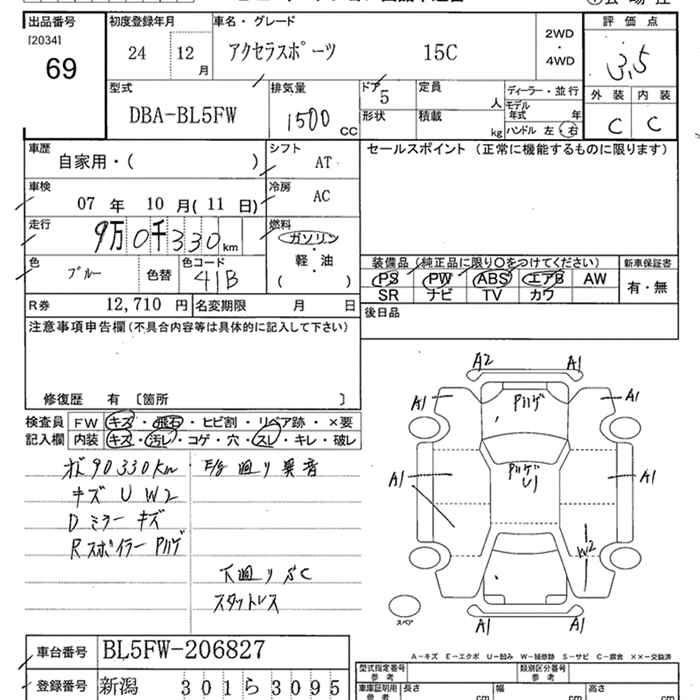 出品番号
[2034]
69
初度登録年月
24 12 月
車名・グレード
アクセラスポーツ 15C
2WD
・
4WD
評価点
3.5
外装 内装
C C
型式
DBA-BL5FW
排気量
1500 cc
ドア
5
定員
人
形状
積載
kg
ディーラー・並行
モデル年式 年
ハンドル 左 右
車歴
自家用・( )
シフト
AT
セールスポイント (正常に機能するものに限ります)
車検
07 年 10 月 (11 日)
冷房
AC
走行
9万0千330 km
燃料
ガソリン
・
軽・油
( )
色
ブルー
色替
色コード
41B
装備品 (純正品に限り○をつけてください)
新車保証書
PS PW ABS エアB AW
有・無
SR ナビ TV カワ
R券 12,710 円
名変期限 月 日
後日品
注意事項申告欄(不具合内容等は具体的に記入して下さい)
修復歴 有 [箇所 ]
検査員
記入欄
FW キズ・飛石・ヒビ割・リペア跡・×要
内装 キズ・汚レ・コゲ・穴・スレ・キレ・破レ
90330km
F/G 廻り異音
キズ U W2
Dミラー キズ
Rスポイラー Pハゲ
下廻り SC
スタットレス
A2 A1
A1 Pハゲ A1
A1 Pハゲ A1
U1
W2
スペア
A1 A1
A-キズ E-エクボ U-凹み W-補修跡 S-サビ C-腐食 ××-交換済
車台番号
BL5FW-206827
登録番号
新潟 301 ら 3095
型式指定番号
参考
類別区分番号
参考
車庫証明用
参考
長さ cm
幅 cm
高さ cm